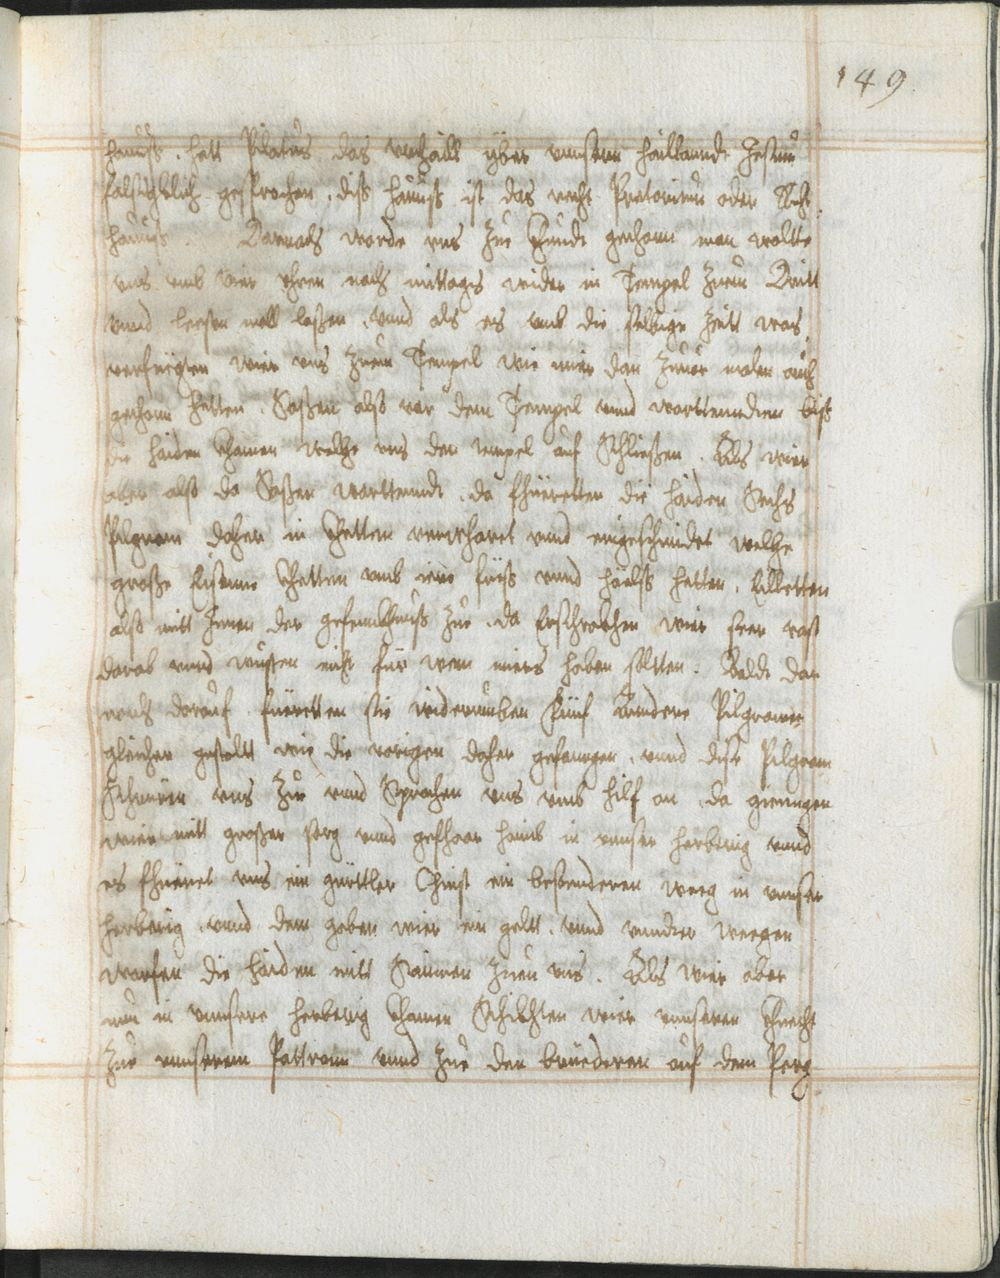 149
hauß. hatt Pilatus das urthaill yber unnseren haillanndt Jesum
fälschglich gesprochen, diß hauß ist das recht Pretorium oder Richt
hauß. Darnach wordt uns zue khundt gethonn man wolte
uns umb vier uhren nach mittags wider in Tempel zum Dritt
unnd lessten mall laßen, unnd als es umb die selbige Zeitt was,
verfuegten wier uns zum Tempel wie mier dan zuvor malen auch
gethonn hetten. Saßen alß vor dem Tempel unnd wartteundten biß
die haiden khamen welche uns den tempel auf Schließen. Als wier
aber alß da Saßen warttendt, da fhüeretten die haiden Sechs
Pilgram daher in khetten verwharet unnd eingeschmidet welche
große Eisenne khetten umb ire füeß unnd häelß hetten, Eilletten
alß mitt Innen der gefenckhnuß zue, da erschrackhen wier seer vast
darab unnd wusten nicht für wem miers haben soltten. Baldt dar
nach darauf füeretten sie widerumben fünf Anndere Pilgramen
gleicher gestaltt wie die vorigen daher gefanngen, unnd dise Pilgram
Schruen uns zue unnd Sprachen uns umb hilf an, da giengen
wier mitt großer sorg unnd gefhaar haimb in unnser herberig unnd
es fhüeret uns ein gürttler Christ ein besonderen weeg in unnser
herberig, unnd dem gaben wier ein geltt, unnd unnder weegen
warfen die haiden mitt Stainen zueu uns. Als wier aber
nun in unnsere herberig khamen Schickhten wier unnseren khnecht
zue unnserem Pattronn unnd zue den brüederen auf dem Perg